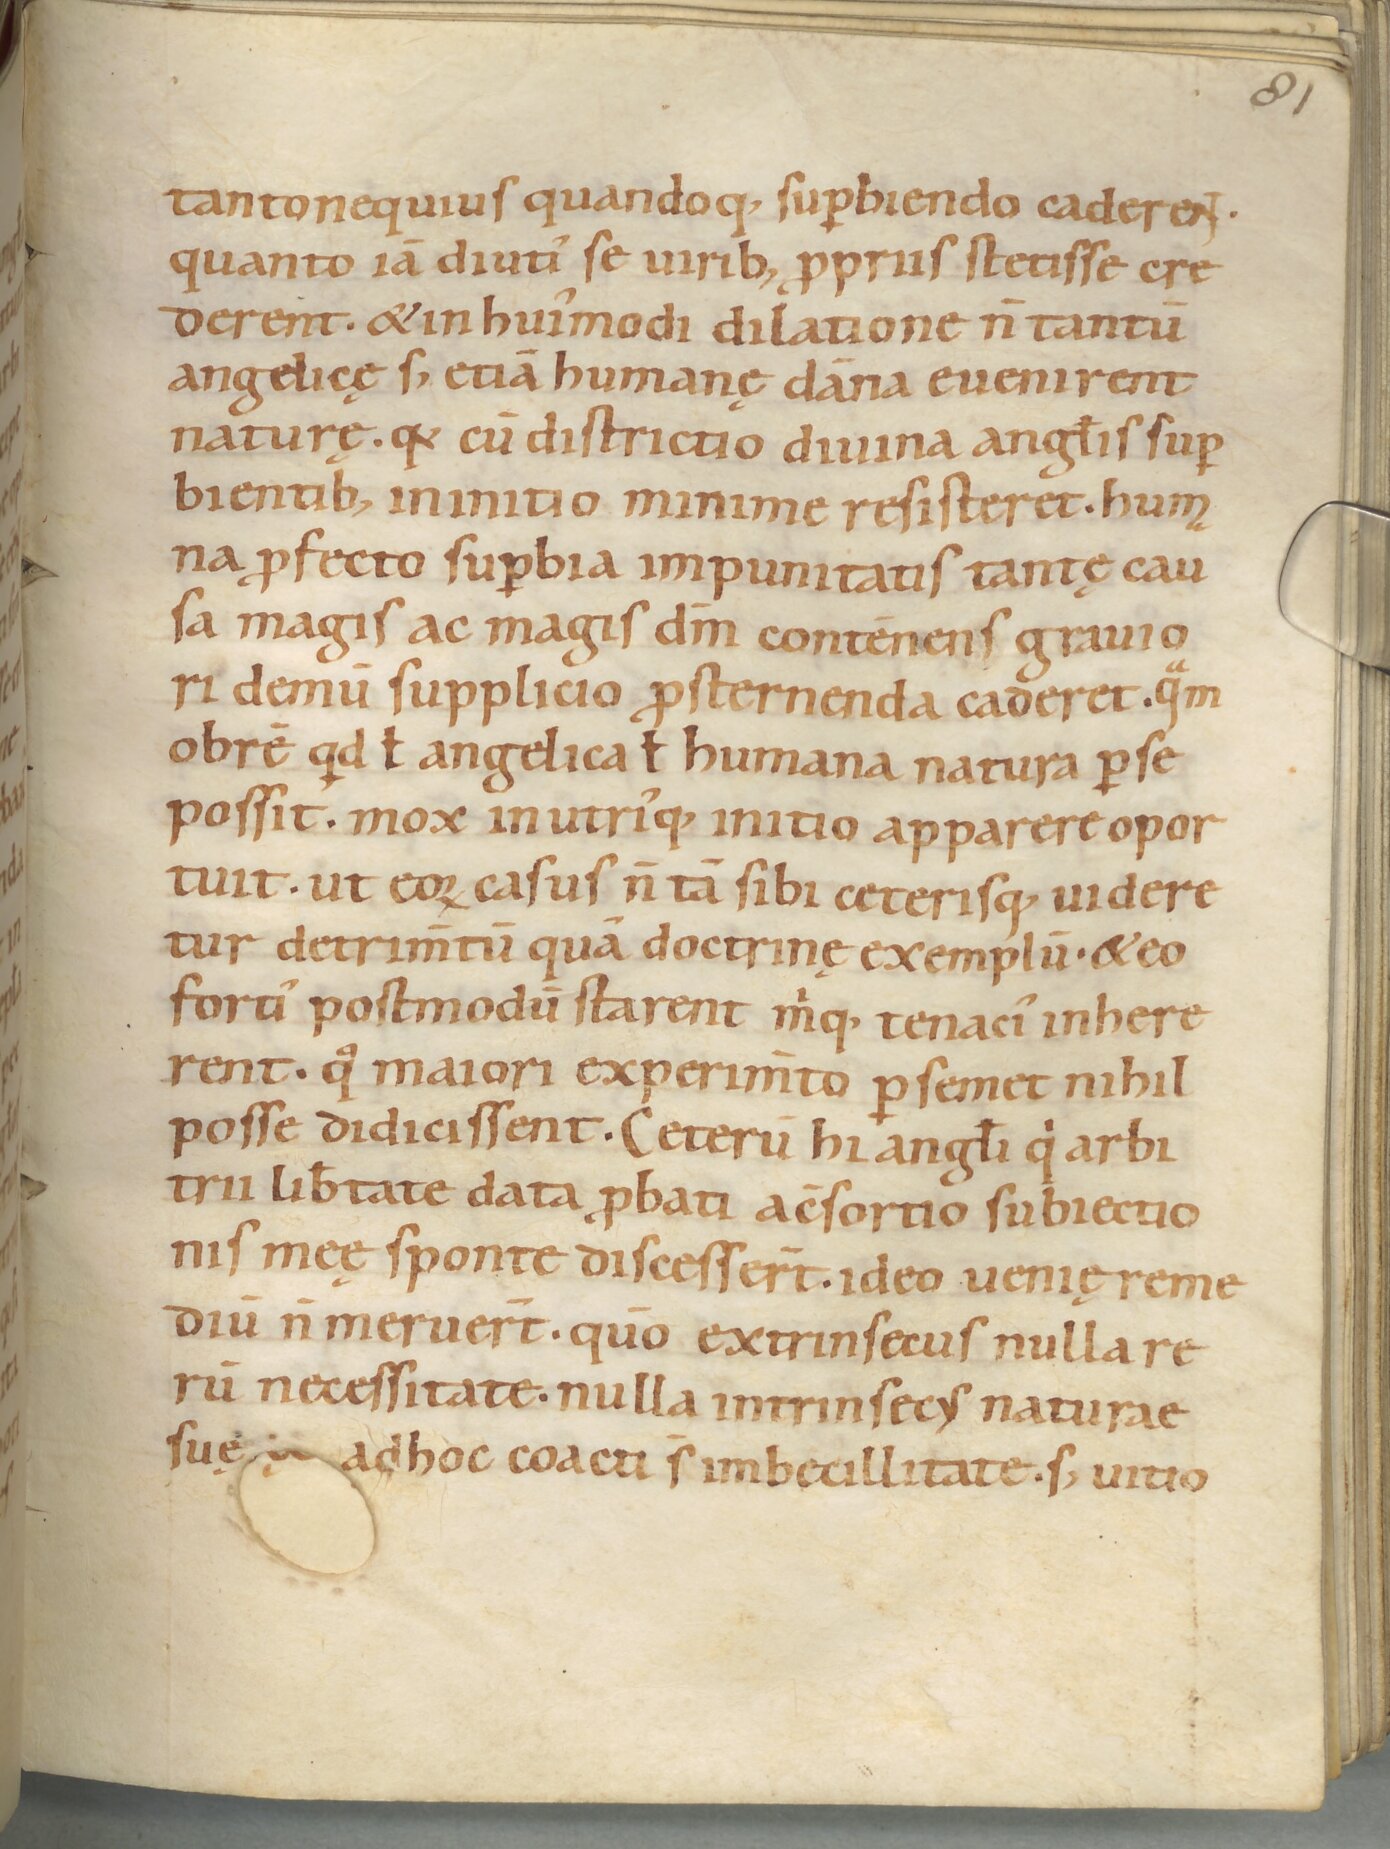 81
tantonequius quandoq, suꝑbiendo caderent.
quanto iā diuti᾽ se uirib; ꝓpriis stetisse cre
derent. & in hui᾽modi dilatione n̄ tantū
angelicę s; etiā humanę dāna euenirent
naturę. qꝛ cū districtio diuina angłis suꝑ
bientib; in initio minime resisteret. humą
na ꝓfecto suꝑbia impunitatis tantę cau
sa magis ac magis dm̄ contēnens grauio
ri demū supplicio ꝓsternenda caderet. qͣm
obrē qd ł angelica ł humana natura ꝑ se
possit. mox in utri᾽q, initio apparere opor
tuit. ut eoꝝ casus n̄ tā sibi ceterisq, uidere
tur detrim̄tū quā doctrinę exemplū. & eo
forti᾽ postmodū starent m̓q, tenaci᾽ inhere
rent. qͦ maiori experim̄to ꝑ semet nihil
posse didicissent. Ceterū hi angłi qͥ arbi
trii lib̄tate data ꝓbati a c̄sortio subiectio
nis meę sponte discesser̄t. ideo uenię reme
diū n̄ meruer̄t. quō extrinsecus nulla re
rū necessitate. nulla intrinsecus naturae
suę ad hoc coacti s̄ imbecillitate. s; uitio